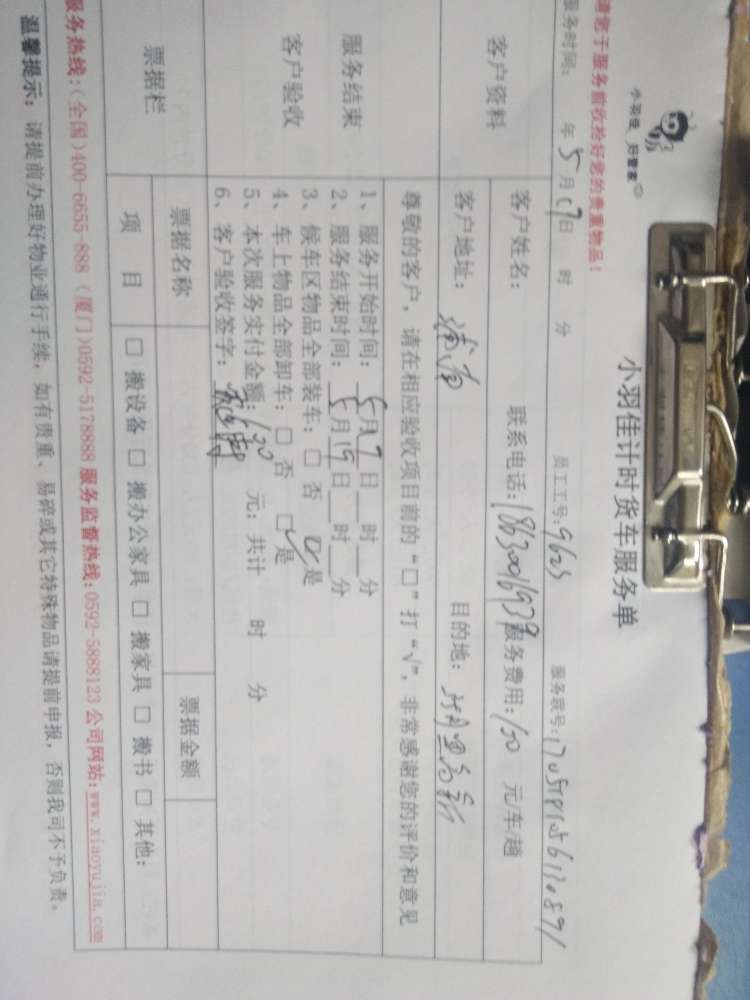 小羽佳 好管家
小羽佳计时货车服务单
请您于服务前收拾好您的贵重物品！
服务时间： 年5月19日 时 分 员工工号：9625 服务联号：
客户资料
客户姓名： 联系电话：18630016939 服务费用：150 元/车/趟
客户地址： 目的地：
服务结束
客户验收
尊敬的客户，请在相应验收项目前的“□”打“√”，非常感谢您的评价和意见
1、服务开始时间： 5月19日 时 分
2、服务结束时间： 5月19日 时 分
3、候车区物品全部装车：□ 否 ☑是
4、车上物品全部卸车：□ 否 ☑是
5、本次服务实付金额：150 元；共计 时 分
6、客户验收签字：
票据栏
票据名称 票据金额
项 目 □ 搬设备 □ 搬办公家具 □ 搬家具 □ 搬书 □ 其他：
服务热线：(全国)400-6655-888 (厦门)0592-5178888 服务监督热线：0592-5888123 公司网站：www.xiaoyujia.com
温馨提示：请提前办理好物业通行手续，如有贵重、易碎或其它特殊物品请提前申报，否则我司不予负责。